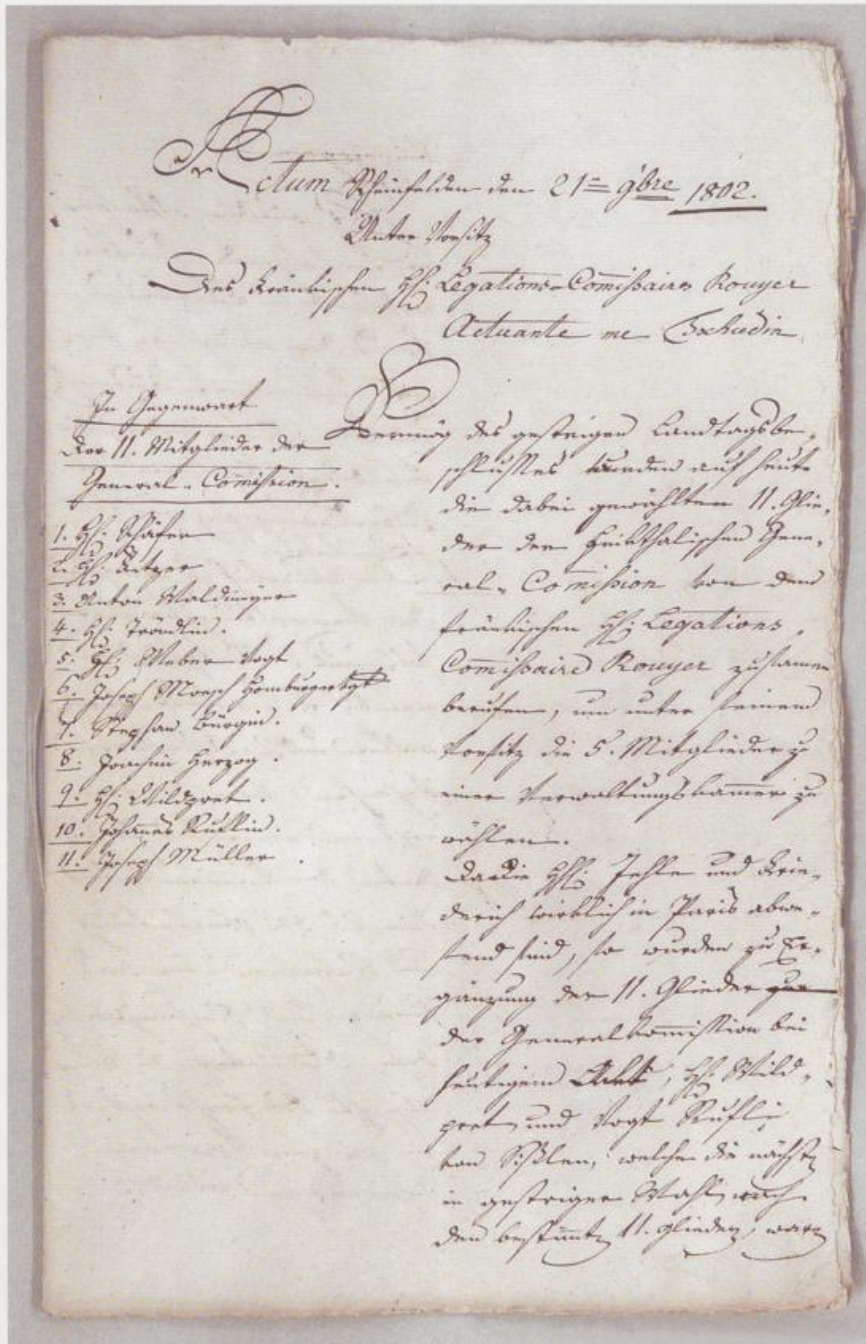 Actum Rheinfelden den 21= 9bre 1802.
Unter Vorsitz
Des Fränkischen H: Legations-Commissaires Rouyer
Actuante me Tschudin
In Gegenwart
der 11. Mitglieder der
General-Comission.
1. H: Schäfer
2. H: Fetzer
3. Anton Waldmeyer
4. H: Tröndlin.
5. H: Weber Vogt
6. Joseph Moesch Homburgervogt
7. Stephan Bürgin.
8. Joachim Herzog.
9. H: Wildpret.
10. Johannes Ruflin.
11. Joseph Müller.
Vermög des gestrigen Landtagsbe-
schlusses wurden auf heute
die dabei gewählten 11. Glie-
der der Frikthalischen Gene-
ral-Comission von dem
fränkischen H: Legations-
Commissaire Rouyer zusamen
berufen, um unter seinem
Vorsitz die 5. Mitglieder zu
einer Verwaltungskammer zu
wählen.
Da die HH: Jehle und Frie-
derich wirklich in Paris abwe-
send sind, so wurden zu Er-
gänzung der 11. Glieder
der Generalkommission bei
heutigem Akt, H: Wild-
pret und Vogt Rufli
von Sißlen, welche die nächsten
in gestriger Wahl nach
den bestimmten 11. Glieden, waren